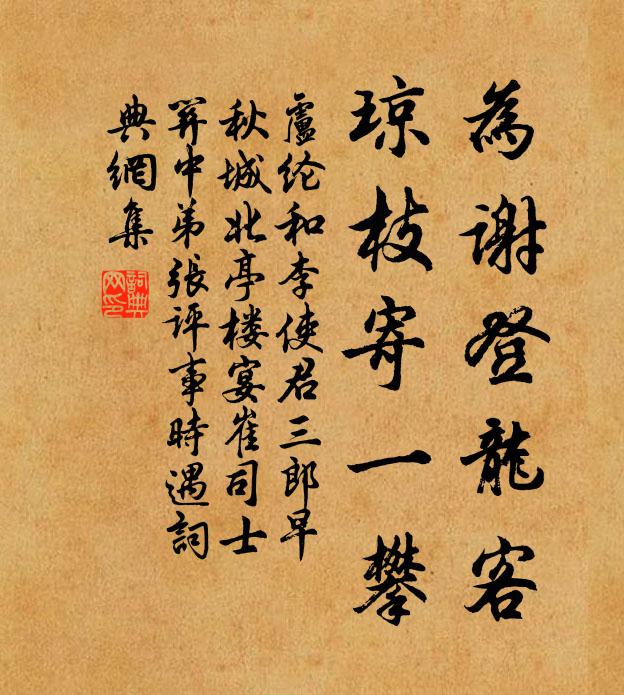 為谢登龍客
琼枝寄一攀
盧纶和李使君三郎早
秋城北亭楼宴崔司士
笄中弟張评事時遇詞
典網集
詞典网印